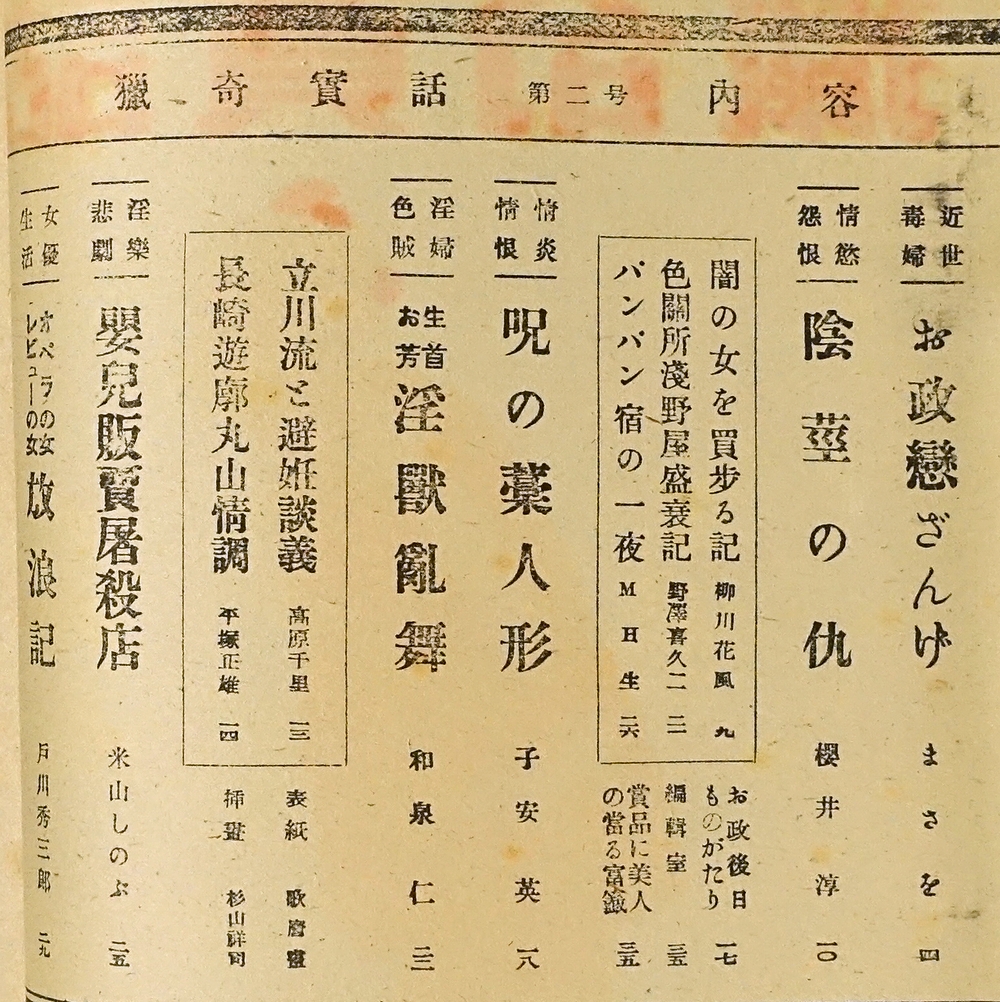 獵奇實話 第二号 内容
近世毒婦 お政戀ざんげ まさを 四
情慾怨恨 陰莖の仇 櫻井淳 一〇
闇の女を買步る記 柳川花風 九
色闘所淺野屋盛衰記 野澤喜久二 二一
パンパン宿の一夜 MH生 二六
お政後日ものがたり 一七
編輯室 三五
賞品に美人の當る富籤 三五
情炎情恨 呪の藁人形 子安英 一八
淫婦色賊 生首お芳 淫獸亂舞 和泉仁 二二
立川流と避妊談義 高原千里 一三
長崎遊廓丸山情調 平塚正雄 一四
表紙 歌麿畫
挿畫 杉山詳司
淫樂悲劇 嬰兒販賣屠殺店 米山しのぶ 二五
女優生活 オペラの女レビューの女 放浪記 戸川秀三郎 二九